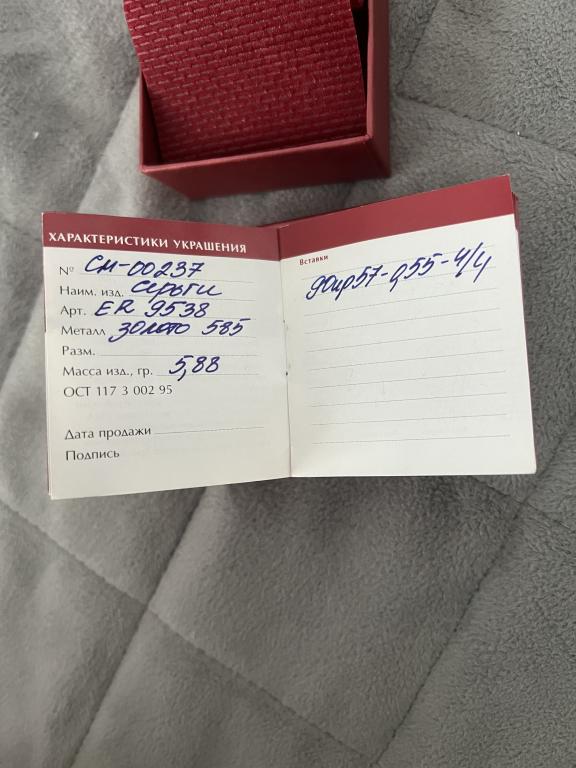 ХАРАКТЕРИСТИКИ УКРАШЕНИЯ
№ СН-00237
Наим. изд. Серьги
Арт. ER 9538
Металл золото 585
Разм.
Масса изд., гр. 5,88
ОСТ 117 3 002 95
Дата продажи
Подпись
Вставки
90кр57-0,55-4/4